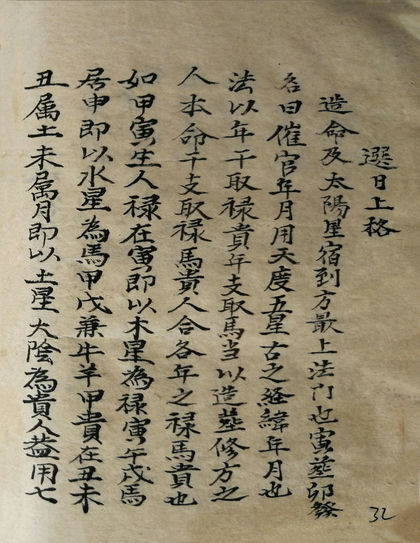 選日上格
造命及太陽星宿到方最上法門也寅葬卯發
名曰催官年月用天度五星古之經緯年月也
法以年干取禄貴年支取馬当以造葬修方之
人本命干支取禄馬貴人合各年之禄馬貴也
如甲寅生人禄在寅即以木星為禄寅午戌馬
居申即以水星為馬甲戊兼牛羊甲貴在丑未
丑属土未属月即以土星太陰為貴人盖用七
32